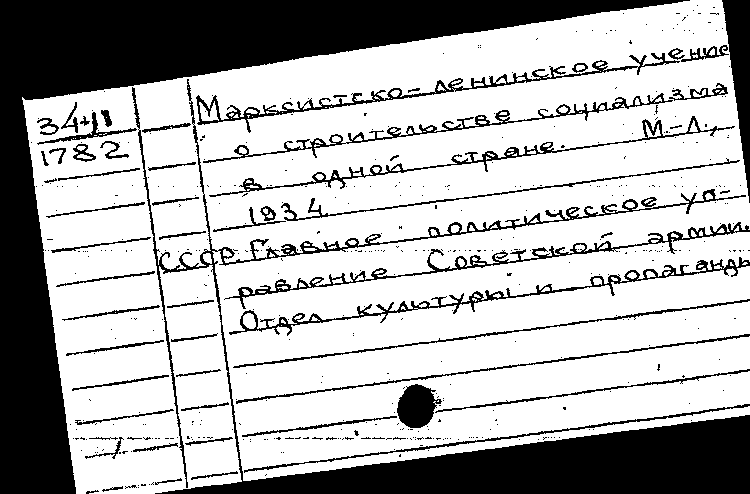 34-11
1782
Марксистско-ленинское учение
о строительстве социализма
в одной стране. М.-Л.,
1934
СССР. Главное политическое уп-
равление Советской армии.
Отдел культуры и пропаганды